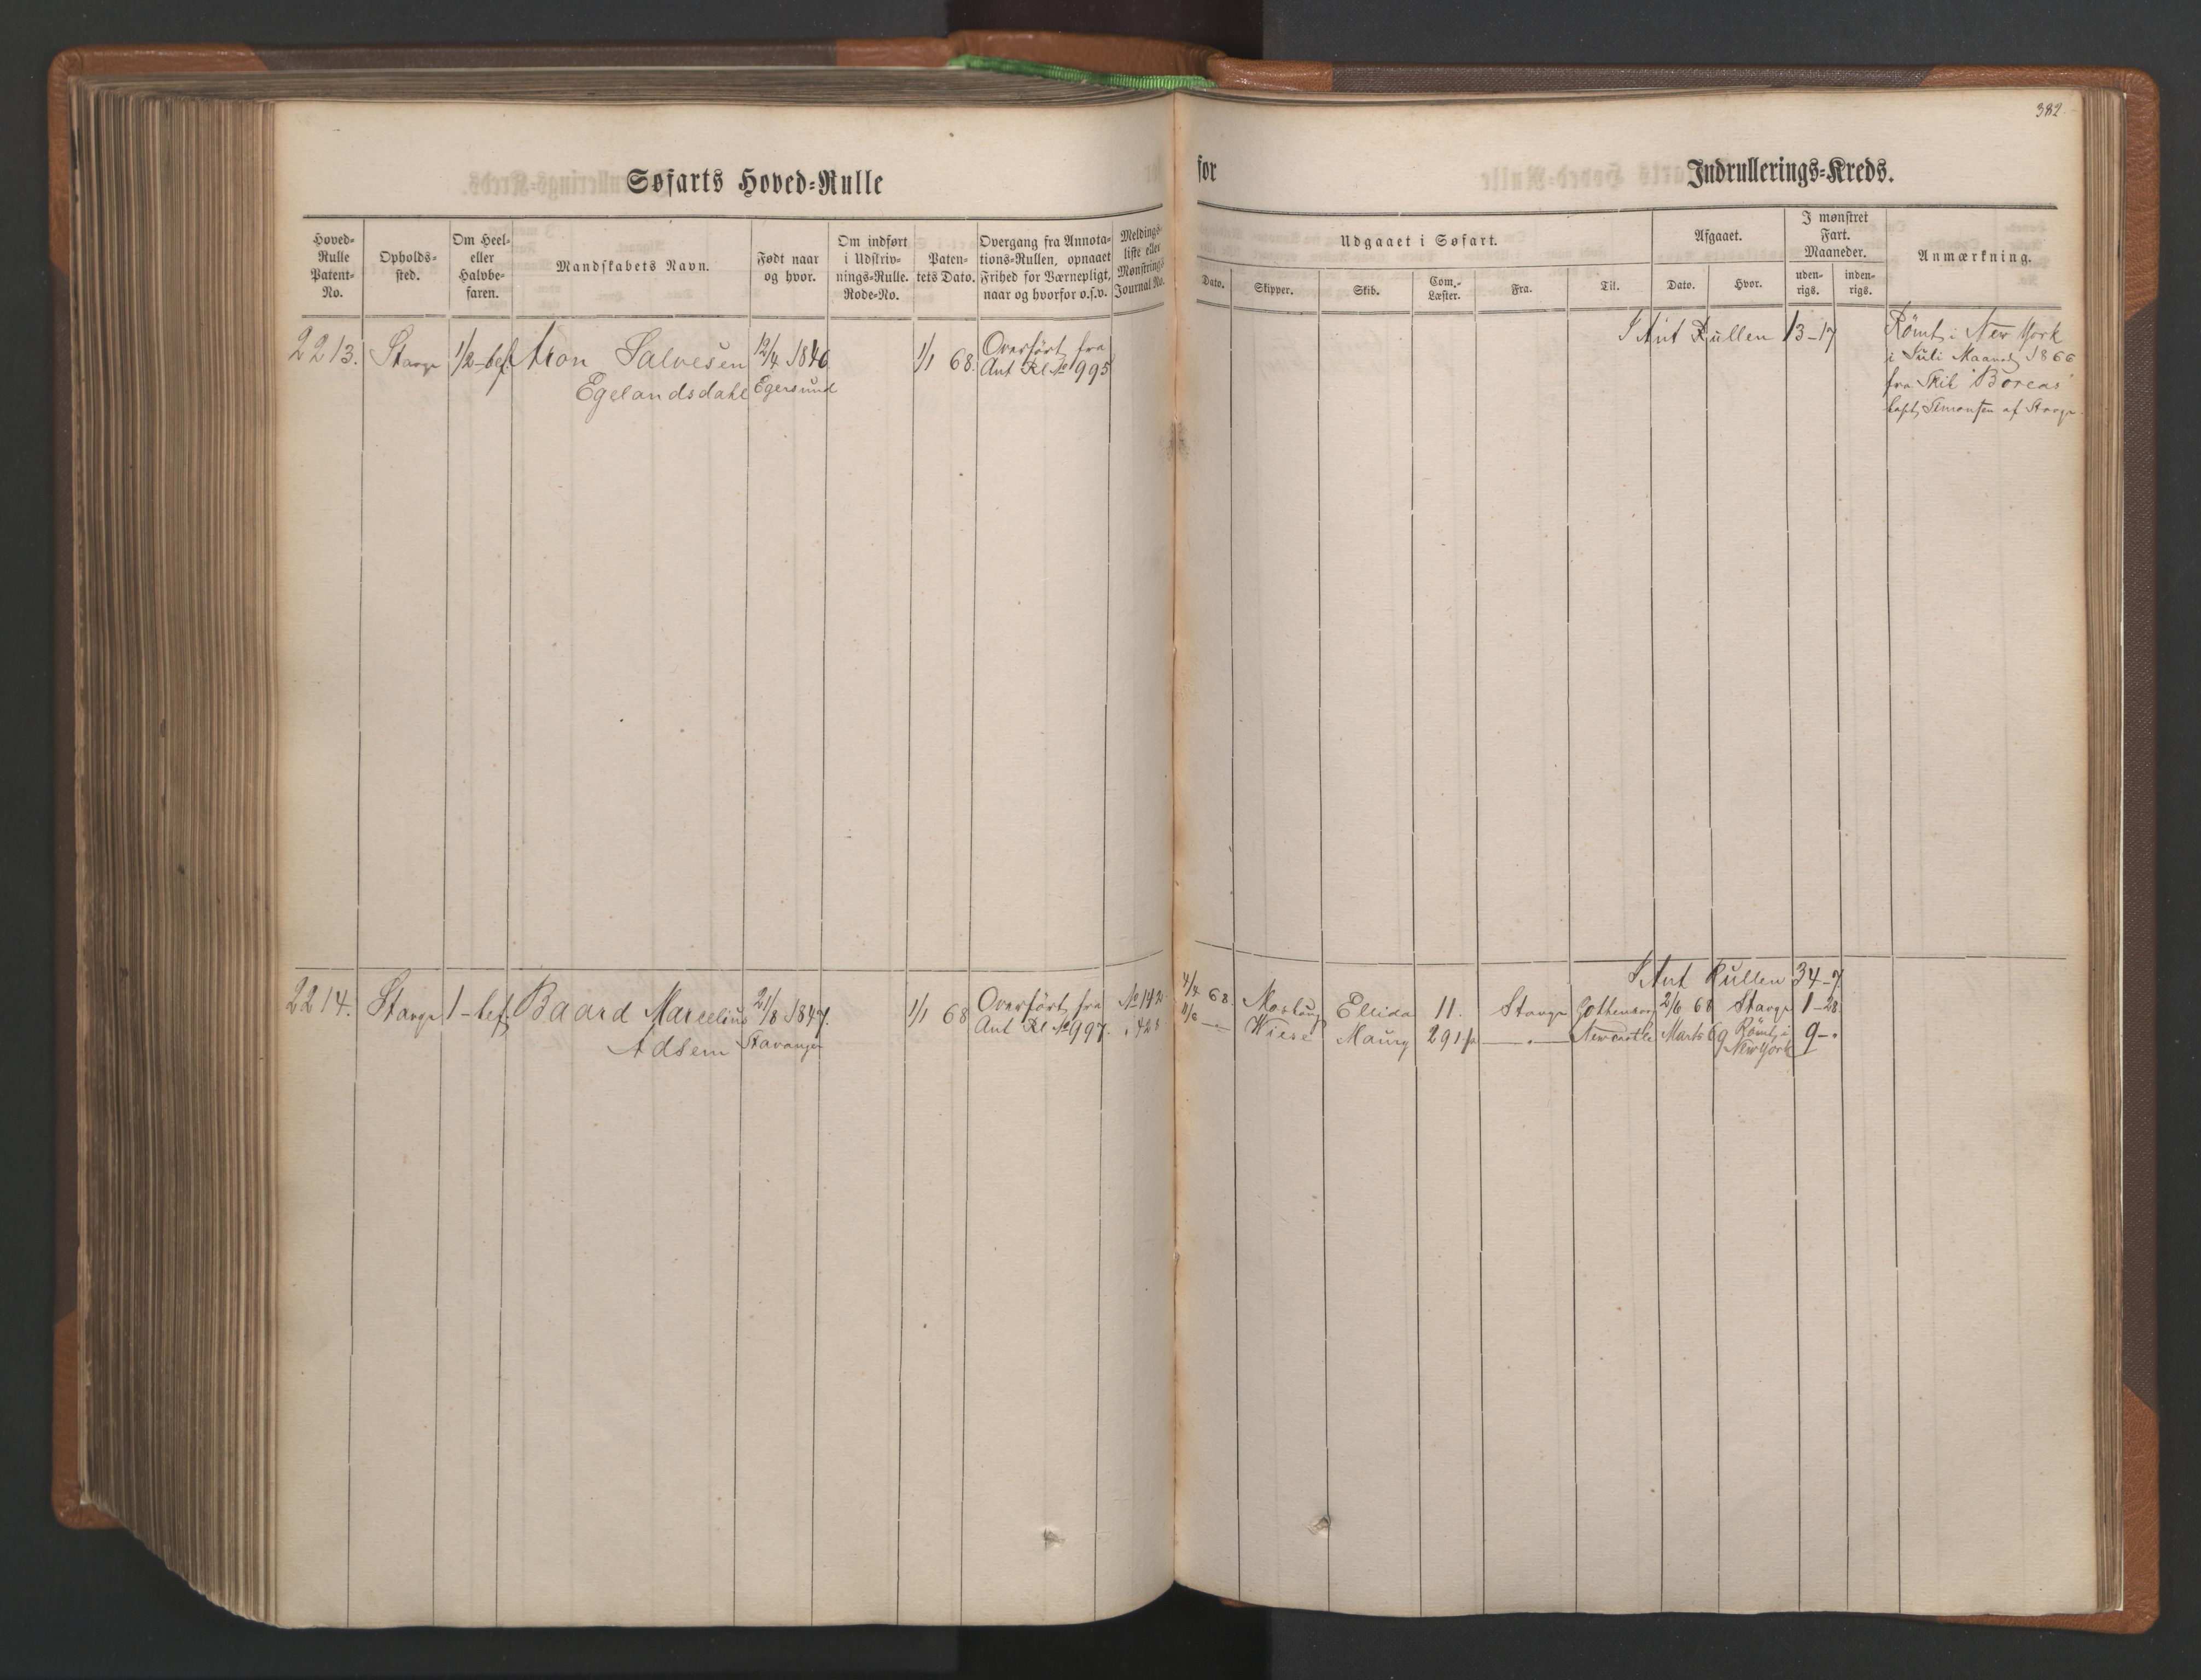 382.
Søfarts Hoved-Rulle
for Indrullerings-Kreds.
Hoved-Rulle Patent-No.
Opholds-sted.
Om Heel- eller Halvbe-faren.
Mandskabets Navn.
Født naar og hvor.
Om indført i Udskriv-nings-Rulle. Rode-No.
Paten-tets Dato.
Overgang fra Annota-tions-Rullen, opnaaet Frihed for Værnepligt, naar og hvorfor o.s.v.
Meldings-liste eller Mønstrings Journal No.
Udgaaet i Søfart.
Dato. Skipper. Skib. Com.-Læster. Fra. Til.
Afgaaet.
Dato. Hvor.
I mønstret Fart. Maaneder.
uden-rigs. inden-rigs.
Anmærkning.
2213. Stavgr 1/2-bef. Aron Salvesen 12/4 1846 1/1 68. Overført fra
Egelandsdahl Egersund Ant Rl No 995
I Ant Rullen 13-17 Römt i New York
i Juli Maaned 1866
fra Skib "Boreas"
Capt. Simonsen af Stavgr
I Ant Rullen 34-7
2214. Stavgr 1-bef. Baard Marcelius 21/8 1847. 1/1 68 Overført fra
Adsem Stavanger Ant Rl No 997.
4/4 68. Ellida 11. Stavgr Gothenborg 2/6 68 Stavgr 1-28
Wiese Maury 291 1/2 —"— Newcastle Marts 69 Römt i New York 9-"